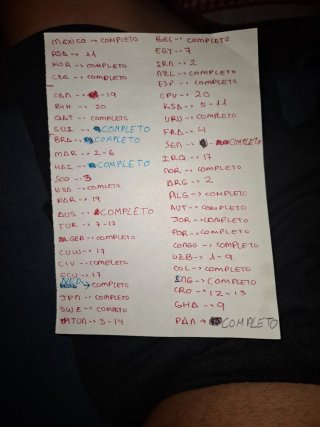 Mexico → COMPLETO
RSA → 11
KOR → COMPLETO
CZE → COMPLETO
CAN → 19
BIH → 20
QAT → COMPLETO
SUI → COMPLETO
BRA → COMPLETO
MAR → 2-6
HAI → COMPLETO
SCO → 3
USA → COMPLETO
PAR → 19
AUS → COMPLETO
TUR → 7-17
GER → COMPLETO
CUW → 17
CIV → COMPLETO
ECU → 17
NED → COMPLETO
JPN → COMPLETO
SWE → COMPLETO
TUN → 3-14
BEL → COMPLETO
EGY → 7
IRN → 2
NZL → COMPLETO
ESP → COMPLETO
CPV → 20
KSA → 5-11
URU → COMPLETO
FRA → 4
SEN → COMPLETO
IRQ → 17
NOR → COMPLETO
ARG → 2
ALG → COMPLETO
AUT → COMPLETO
JOR → COMPLETO
POR → COMPLETO
CONGO → COMPLETO
UZB → 1-9
COL → COMPLETO
ENG → COMPLETO
CRO → 12-13
GHA → 9
PAN → COMPLETO